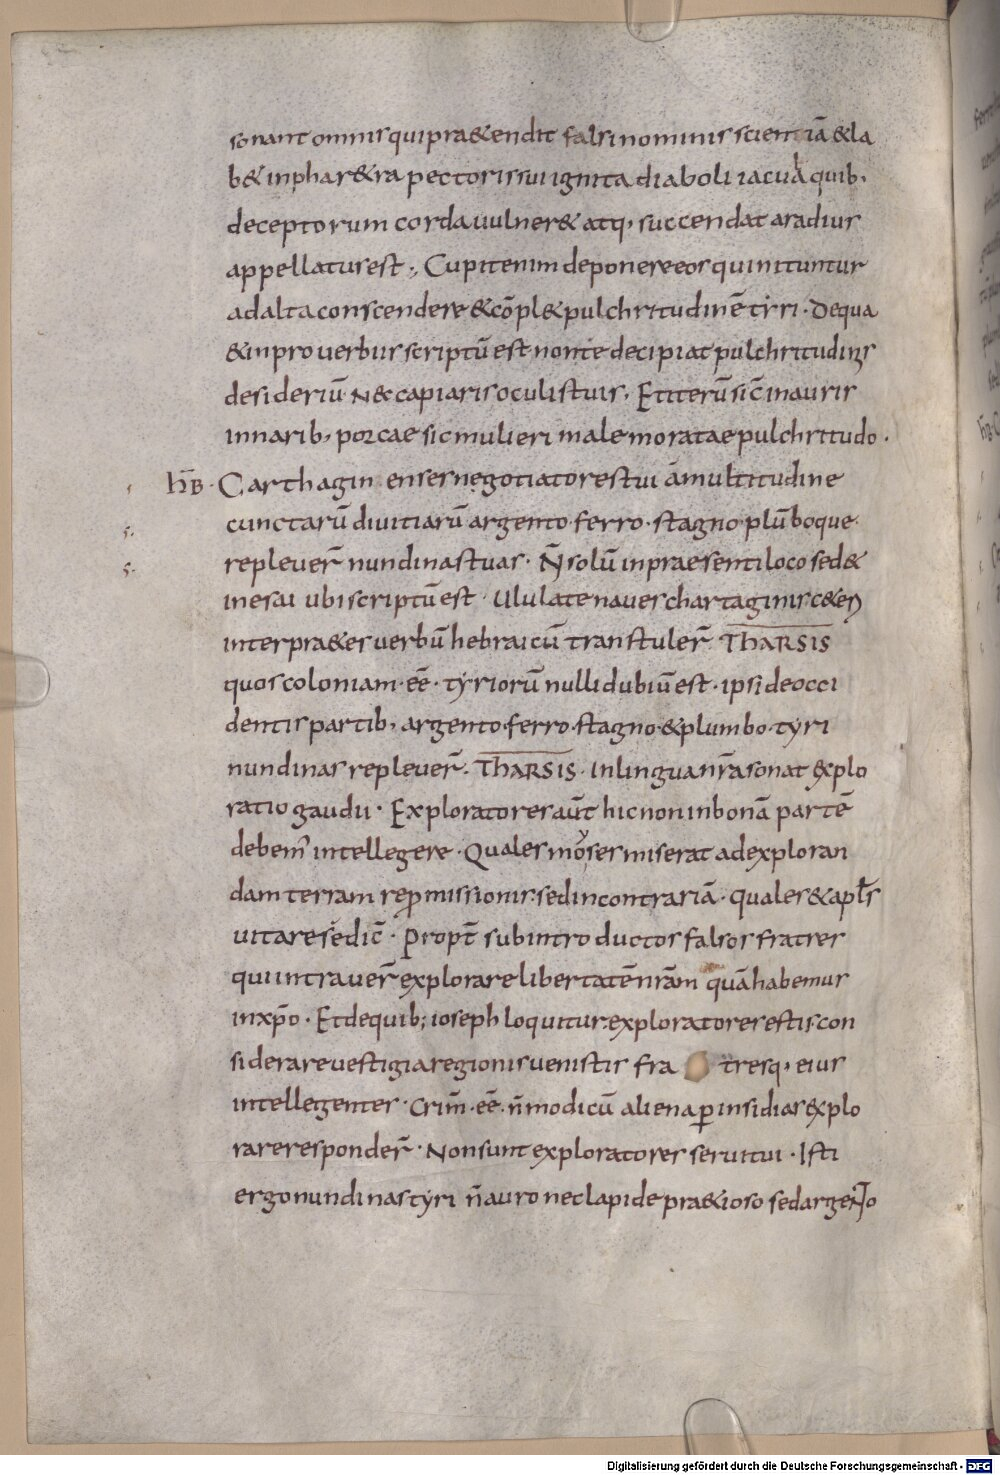 sonant omnis qui pra&endit falsi nominis scientiā & la
b& in phar&ra pectoris sui ignita diaboli iacula quib,
deceptorum corda uulner& atq, succendat aradius
appellatus est., Cupit enim deponere eos qui nituntur
ad alta conscendere & cōpl& pulchritudinē tyri · De qua
& in prouerbiis scriptū est non te decipiat pulchritudinis
desideriū N& capiaris oculis tuis. Et iterū sic̄ inauris
in narib, porcae sic mulieri male moratae pulchritudo ·
h̄B · Carthaginenses negotiatores tui a multitudine
cunctarū diuitiarū argento · ferro · stagno · plūboque ·
repleuer̄ nundinas tuas · N̄ solū in praesenti loco sed &
in esai ubi scriptū est · Ululate naues chartaginis c&eri
interpra&es uerbū hebraicū transtuler̄ THARSIS
quos coloniam · eē · tyriorū nulli dubiū est · ipsi de occi
dentis partib, argento · ferro · stagno · & plumbo · tyri
nundinas repleuer̄ · THARSIS · in lingua nr̄a sonat explo
ratio gaudii · Exploratores aūt hic non in bonā partē
debem' intellegere · Quales moyses miserat ad exploran
dam terram repromissionis · sed in contrariā · quales & apl̄s
uitare se dic̄ · Propt̄ subintroductos falsos fratres
qui intrauer̄ explorare libertatē nr̄am quā habemus
in xp̄o · Et de quib; ioseph loquitur · exploratores estis con
siderare uestigia regionis uenistis fra tresq, eius
intellegentes · Crim̄ · eē · n̄ modicū aliena per insidias explo
rare responder̄ · Non sunt exploratores serui tui · Isti
ergo nundinas tyri n̄ auro nec lapide pra&ioso sed argento
Digitalisierung gefördert durch die Deutsche Forschungsgemeinschaft - DFG